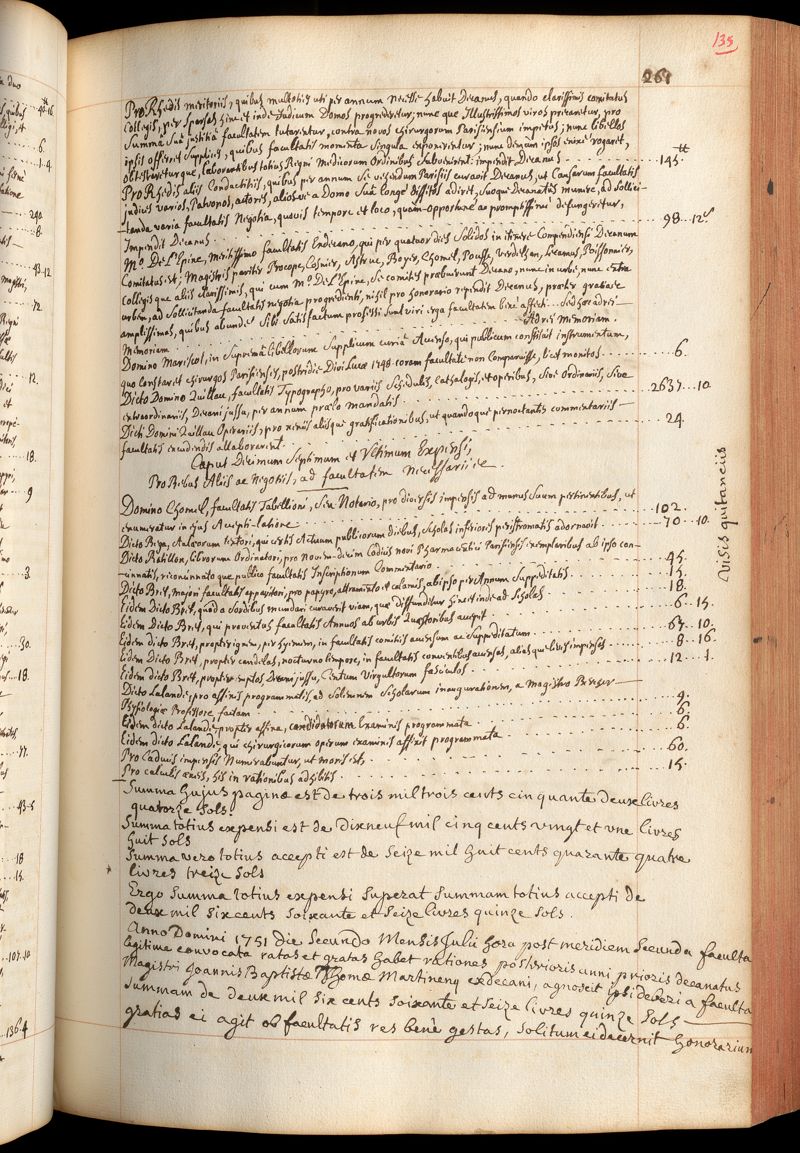 135
261
Pro Rhedis meritoriis, quibus multoties uti per annum necesse habuit Decanus, quando clarissimis comitatus
Collegis, per sparsas hinc et inde Judicum Domos progrederetur, nunc que Illustrissimos viros precaretur, pro
Summa Sua justitia facultatem tutarentur, contra novos chirurgorum Parisiensium impetus; nunc libellos
ipsis offerret Supplices, quibus facultatis momenta Singula exponerentur; nunc demum ipsos enixe rogaret,
obtestareturque, laborantibus totius Regni Medicorum Ordinibus Subvenirent: impendit Decanus 145 ₶
Pro Rhedis aliis Conductitiis, quibus per annum Se vehendum Parisiis curavit Decanus, ut Causarum facultatis
judices varios, Patronos, actores, aliosve a Domo Sua longe dissitos adiret, Suoque Decanatus munere, ad Sollici-
-tanda varia facultatis Negotia, quovis tempore et loco, quam opportune ac promptissime defungeretur,
Impendit Decanus 98 . 12 s
Mo. De L'Epine, meritissimo facultatis Exdecano, qui per quatuor dies Solidos in itinere Compendiensi Decanum
Comitatus est; Magistris pariter Procope, Cosnier, Astruc, Boyer, Chomel, Pousse, Verdelhan, Lecamus, Poissonnier,
Collegis que aliis clarissimis, qui cum Mo. De L'Epine, Se comites probuerunt Decano, nunc in urbe, nunc extra
urbem, ad Sollicitanda facultatis negotia progredienti, nihil pro honorario rependit Decanus, praeter gratiae
amplissimas, quibus abunde Sibi Satisfactum professi Sunt viri erga facultatem bene affecti. Sed hor adrei
Memoriam Adrei Memoriam.
Domino Mariscol, in Suprema libellorum Supplicum curia Auenso, qui publicum confecit instrumentum,
quo constaret chirurgos Parisienses, postridie Divi Lucae 1748 coram facultate non Comparuisse, licet monitos 6.
Dicto Domino Quillau, facultatis Typographo, pro variis Schedulis, Catalogis, et operibus, Sive Ordinariis, Sive
extraordinariis, Decani jussu, per annum praelo mandatis 2637 . 10
Dicti Domini Quillau Operariis, pro xeniis aliisque gratificationibus, ut quandoque pernoctantes commentariis
facultatis excudendis allaborarent 24.
Caput Decimum Septimum et Ultimum Expensi,
Pro Rebus Aliis ac Negotiis, ad facultatem Necessariis.
Domino Chomel, facultatis Tabellioni, Seu Notario, pro diversis impensis ad munus Suum pertinentibus, ut
enumeratur in ejus Accepti-latione 102.
Dicto Beya, Aulaeorum textori, qui certis Actuum publicorum diebus, Scholas inferiores peristromatis adornavit 70 . 10.
Dicto Ratillon, librorum Ordinatori, pro novem-decim Codicis novi Pharmaceutici Parisiensis exemplaribus ab ipso con-
-cinnatis, riconinnato que publico facultatis Inscriptionum Commentario 45.
Dicto Bret, majori facultatis apparitori, pro papyro, attramento et calamis, ab ipso per Annum Suppeditatis 15.
Eidem Dicto Bret, quod a Sordibus mundari curaverit viam, que diffunditur hinc et inde ad Scholas 18.
Eidem Dicto Bret, qui proventus facultatis Annuos ab urbis Quaestoribus accepit 6 . 15.
Eidem dicto Bret, propter ignem, per hyemem, in facultatis comitiis accensum ac Suppeditatum 67 . 10
Eidem Dicto Bret, propter candelas, nocturno tempore, in facultatis conventibus accensas, aliasque leves impensas 8 . 16.
Eidem dicto Bret, propter emptos, Decani jussu, Centum Virgultorum fasciculos 12 . 1.
Dicto Lalande, pro affixis programmatis, ad Solemnem Scholarum inaugurationem, a Magistro Bercer
Physiologiae Professore, factam 9.
Eidem dicto Lalande, propter affixa, candidatorum Examinis programmata 6.
Eidem dicto Lalande, qui chirurgicorum operum examinis affixit programmata 6.
Pro Caducis impensis Numerabuntur, ut moris est, 60.
Pro calculis aereis, bis in rationibus adhibitis 15.
visis quitanciis
Summa hujus paginae est de trois mil trois cents cinquante deux livres
quatorze sols.
Summa totius expensi est de dixneuf mil cinq cents vingt et une livres
huit sols
Summa vero totius accepti est de seize mil huit cents quarante quatre
livres treize sols
Ergo summa totius expensi superat summam totius accepti de
deux mil six cents soixante et seize livres quinze sols.
Anno Domini 1751 die secundo Mensis Julii hora post meridiem secunda faculta
legitime convocata ratas et gratas habet rationes posterioris anni prioris decanatus
Magistri Joannis Baptistae Thomae Martinenq exdecani, agnoscit ipsi deberi a faculta
summam de deux mil six cents soixante et seize livres quinze sols
gratias ei agit ob facultatis res bene gestas, solitum ei decernit honorarium